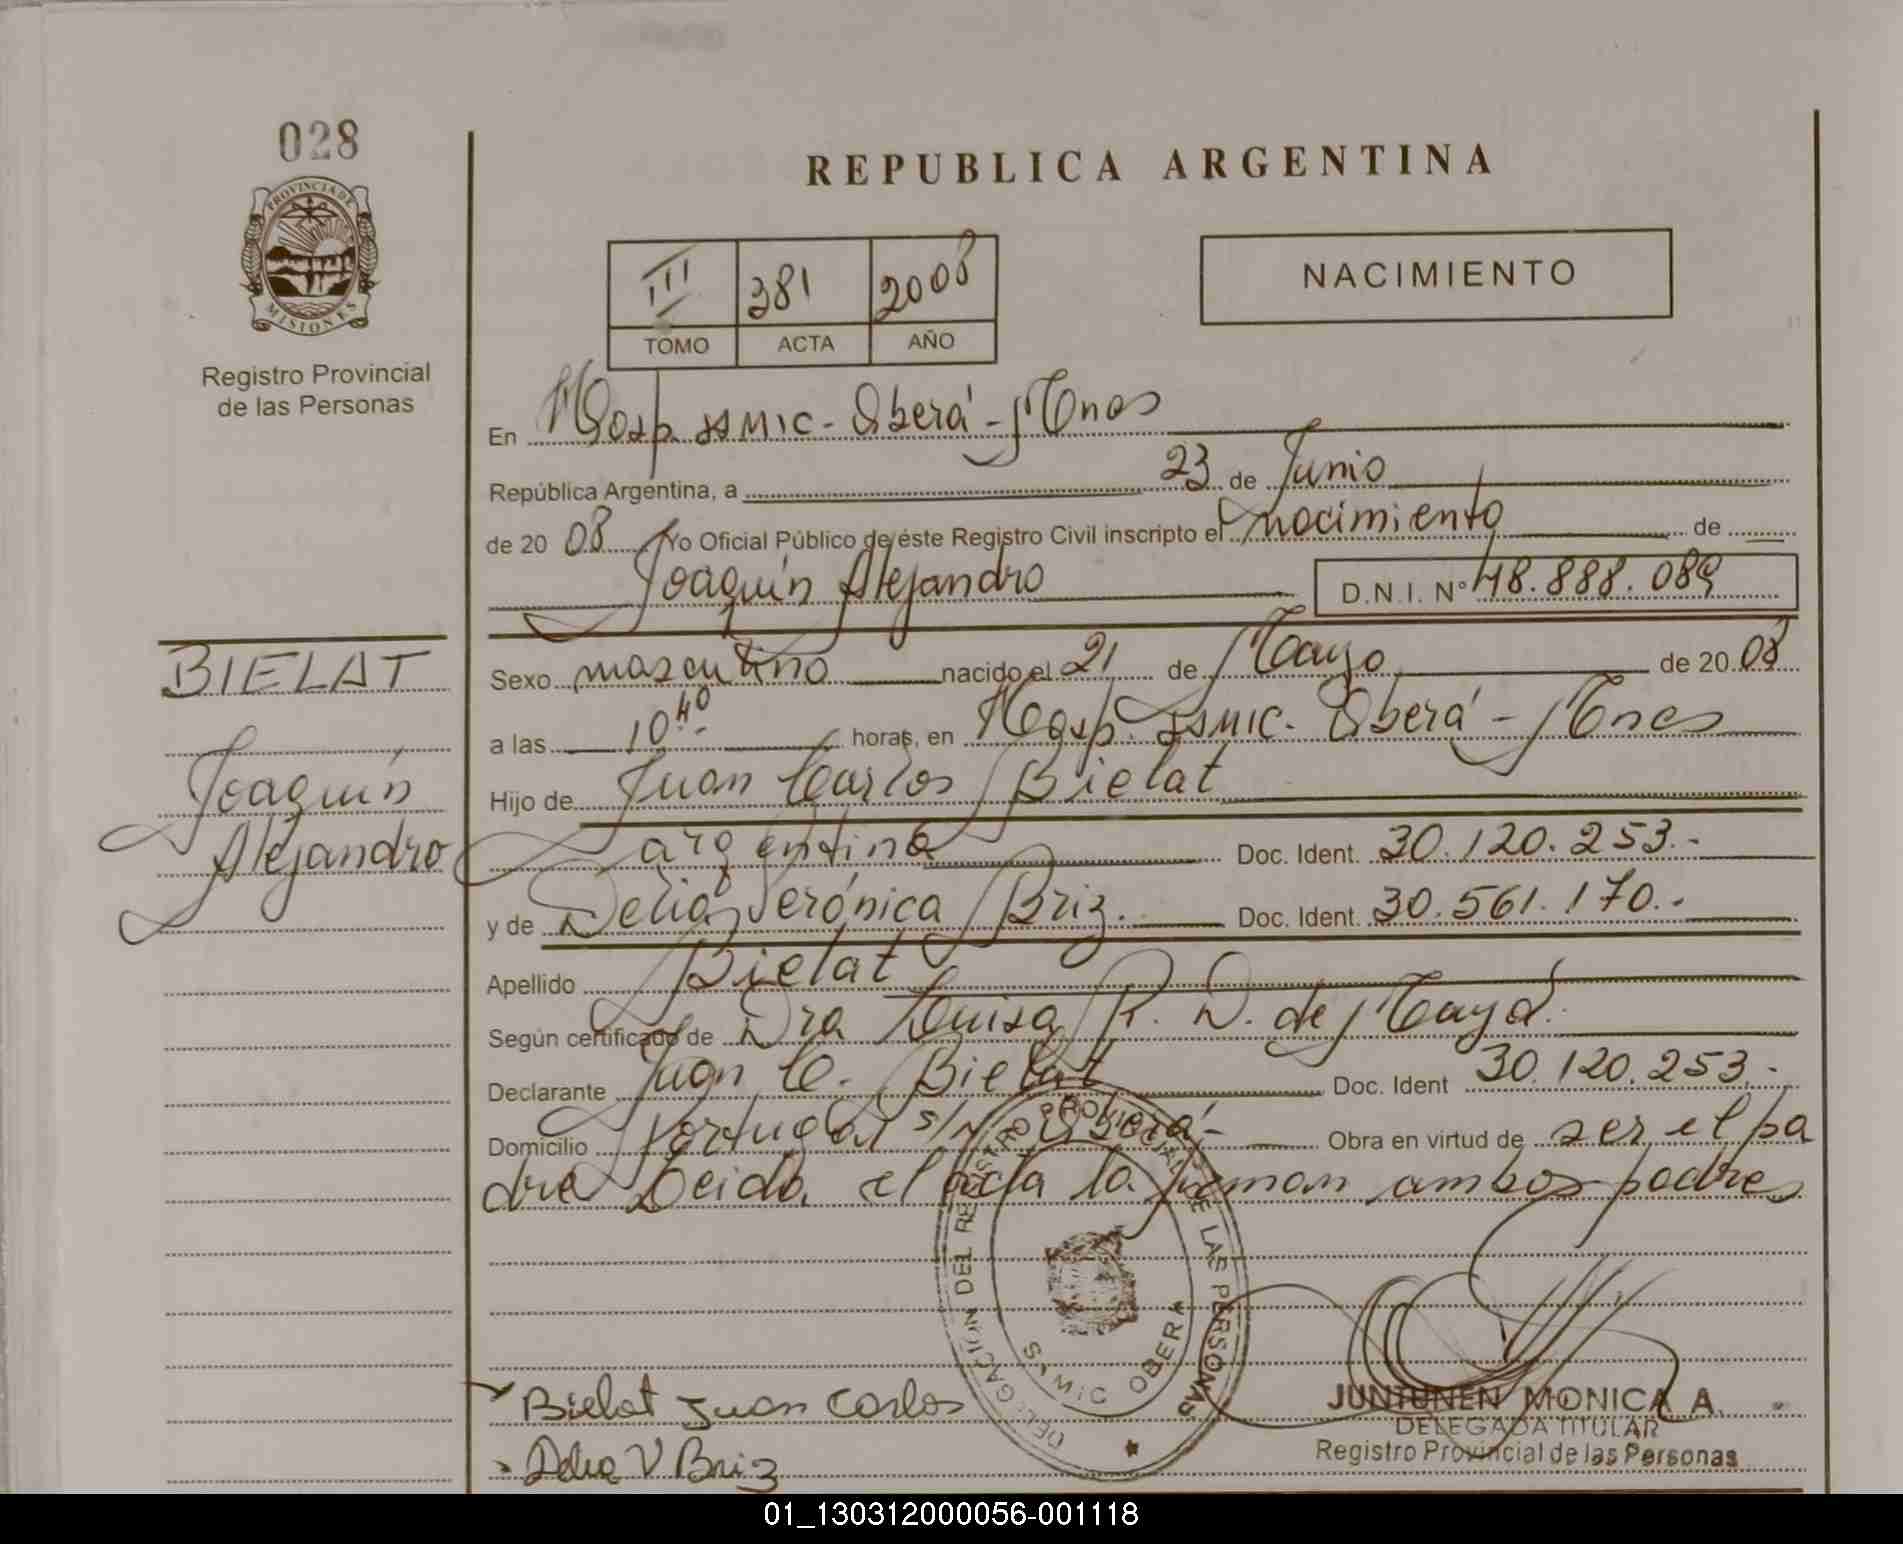 028
PROVINCIA DE
MISIONES
Registro Provincial
de las Personas
REPUBLICA ARGENTINA
III 381 2008
TOMO ACTA AÑO
NACIMIENTO
En Hosp. SAMIC - Oberá - Mnes
República Argentina, a 23 de Junio
de 20 08 Yo Oficial Público de éste Registro Civil inscripto el nacimiento de
Joaquín Alejandro D.N.I. Nº 48.888.089
BIELAT
Joaquín
Alejandro
Sexo masculino nacido el 21 de Mayo de 20 08
a las 10 40 horas, en Hosp. SAMIC - Oberá - Mnes
Hijo de Juan Carlos Bielat
argentino Doc. Ident. 30.120.253.-
y de Delia Verónica Briz. Doc. Ident. 30.561.170.-
Apellido Bielat
Según certificado de Dra Luisa R. D. de
Declarante Juan C. Bielat Doc. Ident 30.120.253.-
Domicilio Portugal s/n Oberá - Obra en virtud de ser el pa
dre Leida el acta la firman ambos padres
DELEGACION DEL REGISTRO PROVINCIAL DE LAS PERSONAS
SAMIC OBERA
Bielat Juan Carlos
Delia V Briz
JUNTUNEN MONICA A.
DELEGADA TITULAR
Registro Provincial de las Personas
01_130312000056-001118